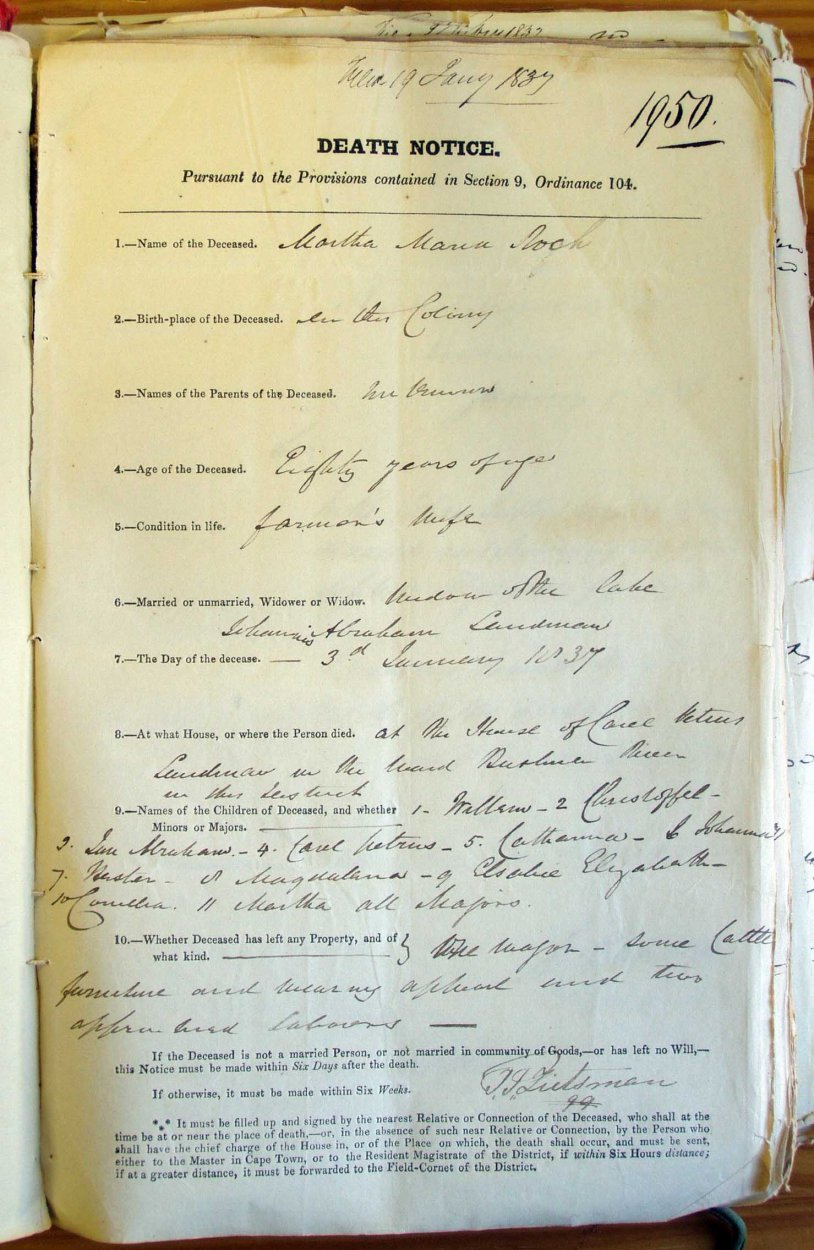 19 Jany 1837
1950.
DEATH NOTICE.
Pursuant to the Provisions contained in Section 9, Ordinance 104.
1.—Name of the Deceased. Martha Maria Kock
2.—Birth-place of the Deceased. In this Colony
3.—Names of the Parents of the Deceased. Unknown
4.—Age of the Deceased. Eighty years of age
5.—Condition in life. farmer's wife
6.—Married or unmarried, Widower or Widow. Widow of the late
Johannis Abraham Landman
7.—The Day of the decease. — 3d January 1837
8.—At what House, or where the Person died. at the House of Carel Petrus
Landman in the ward Bushman River
in this District
9.—Names of the Children of Deceased, and whether 1- Willem - 2 Christoffel -
Minors or Majors.
3. Jan Abraham - 4. Carel Petrus - 5. Catharina - 6 Johanna
7. Hester - 8 Magdalena - 9 Elsabie Elizabeth -
10 Cornelia. 11 Martha all Majors.
10.—Whether Deceased has left any Property, and of } One wagon - some Cattle
what kind.
furniture and wearing apparel and two
apprenticed laborers —
If the Deceased is not a married Person, or not married in community of Goods,—or has left no Will,—
this Notice must be made within Six Days after the death.
If otherwise, it must be made within Six Weeks.
Zietsman
*** It must be filled up and signed by the nearest Relative or Connection of the Deceased, who shall at the
time be at or near the place of death,—or, in the absence of such near Relative or Connection, by the Person who
shall have the chief charge of the House in, or of the Place on which, the death shall occur, and must be sent,
either to the Master in Cape Town, or to the Resident Magistrate of the District, if within Six Hours distance;
if at a greater distance, it must be forwarded to the Field-Cornet of the District.